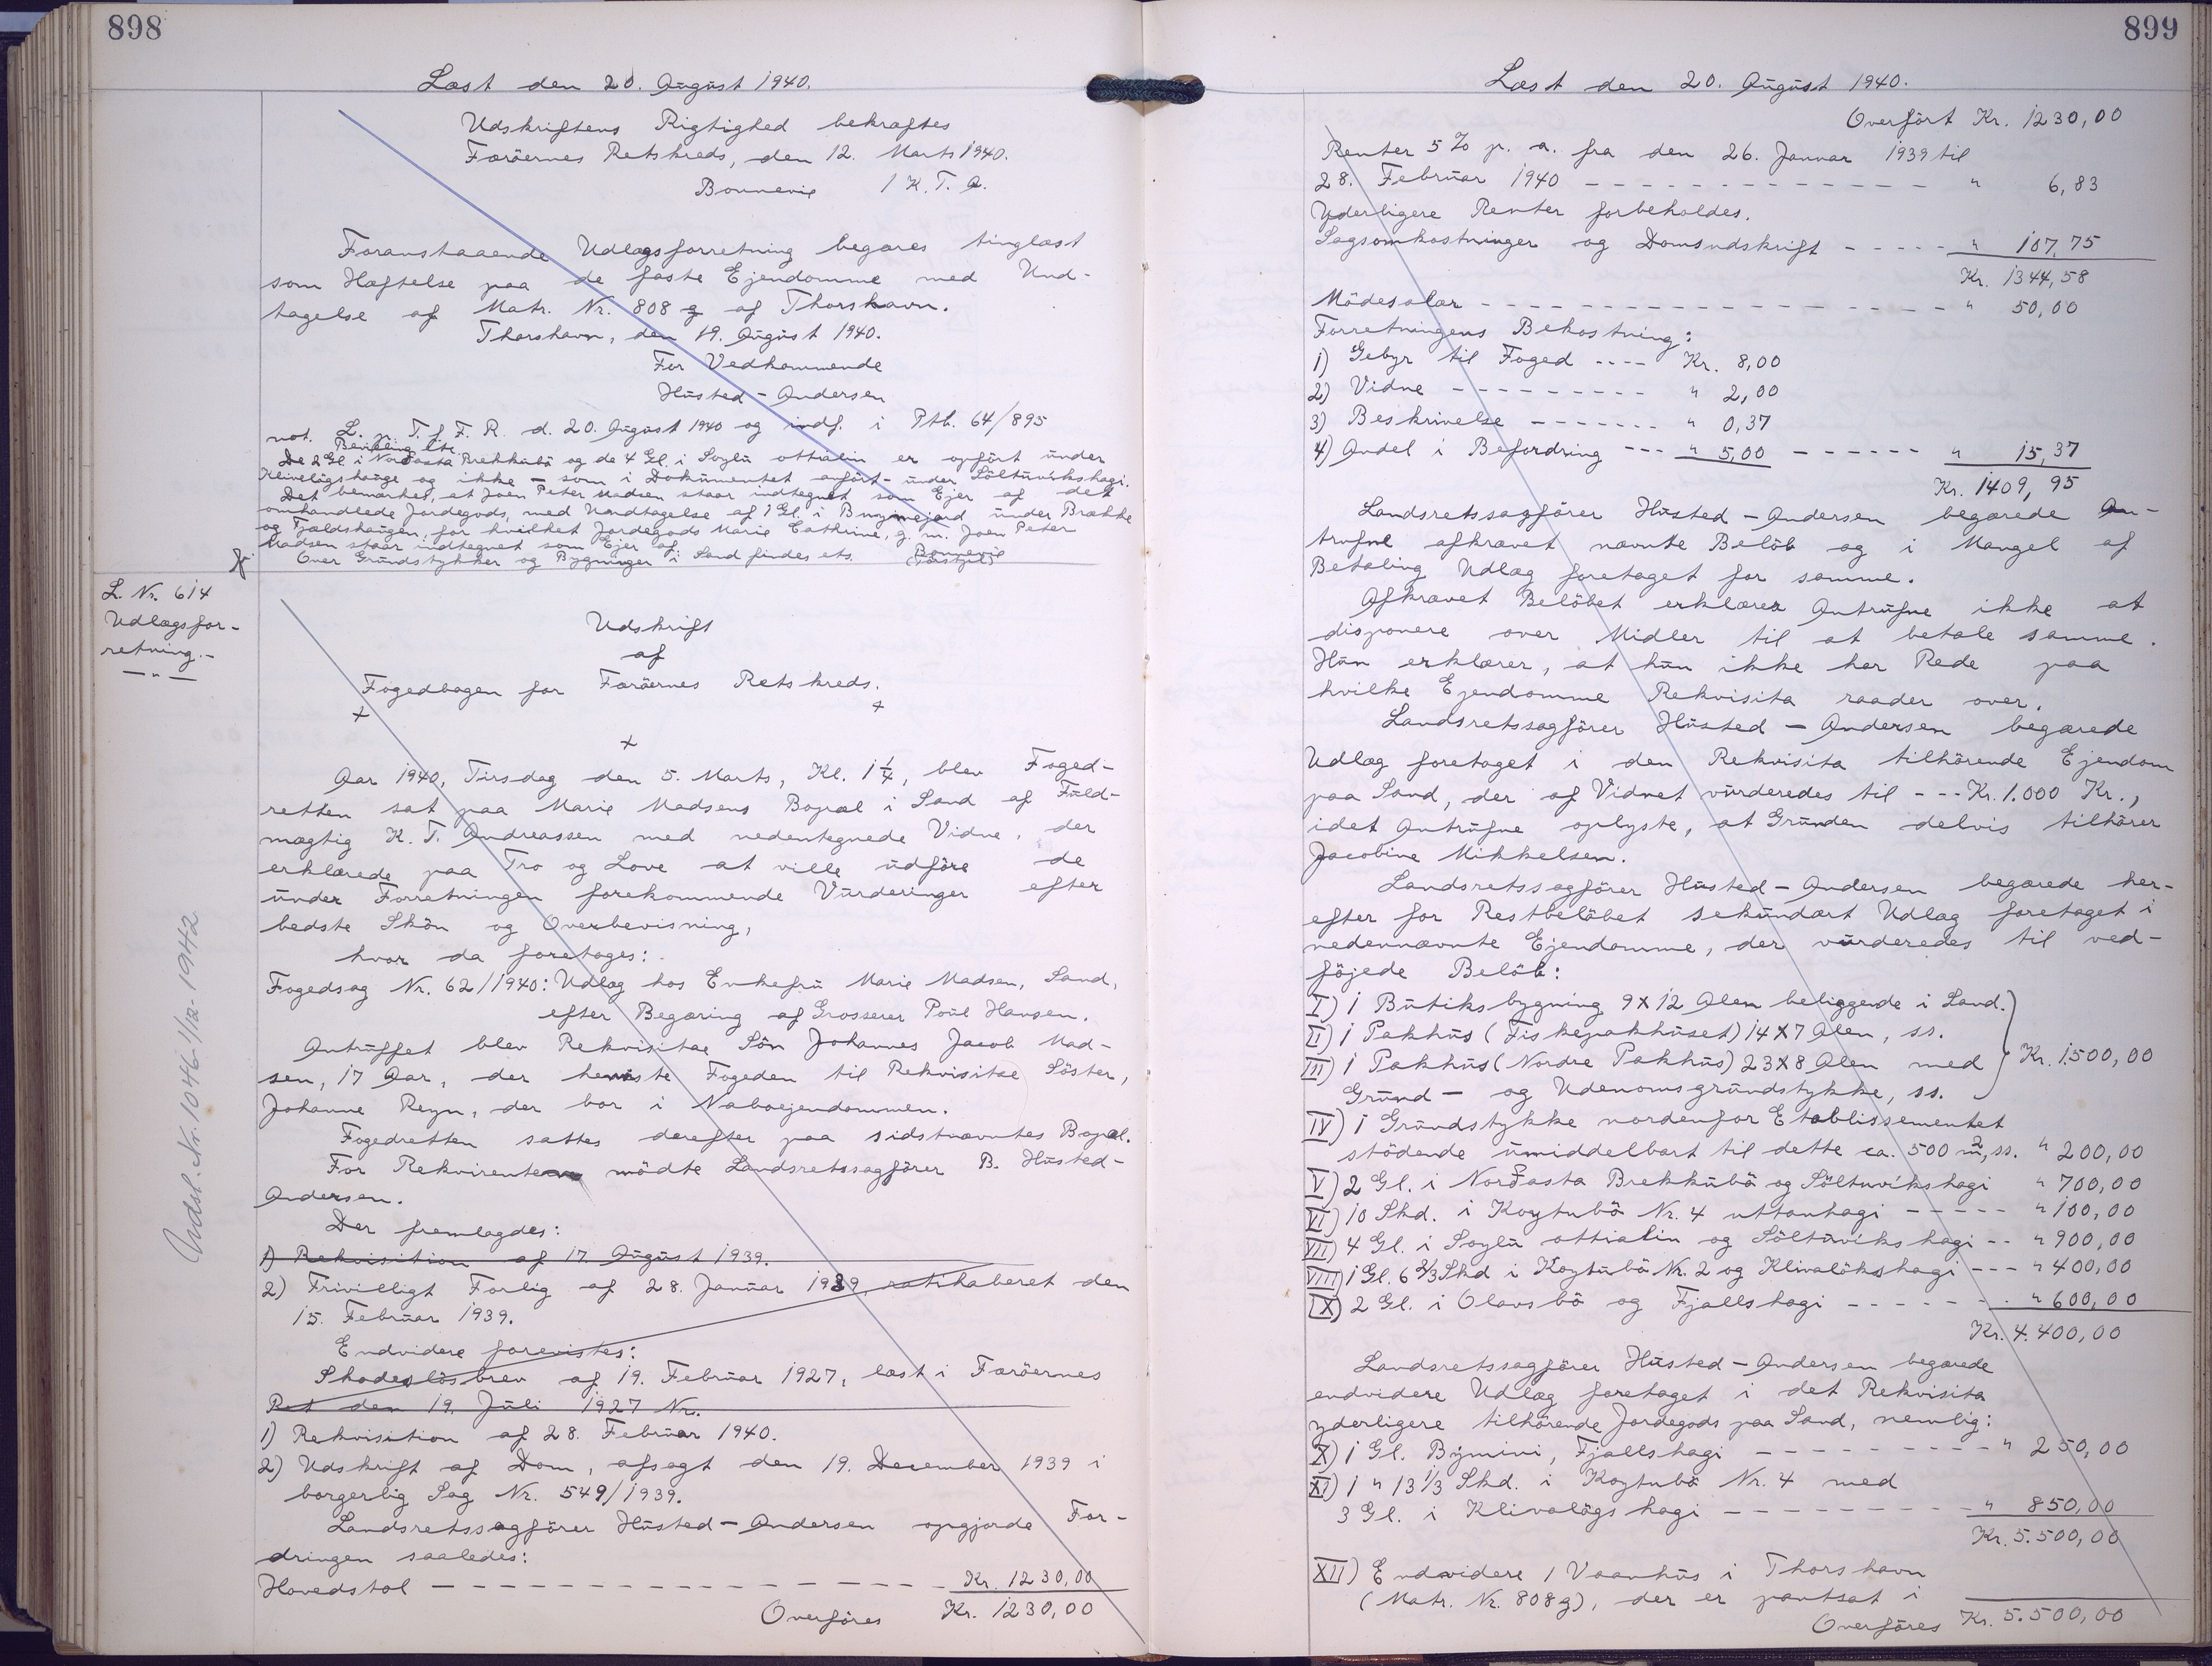 898
Læst den 20. August 1940.
Udskriftens Rigtighed bekræftes
Færöernes Retskreds, den 12. Marts 1940.
Bonnevie / K. T. A.
Foranstaaende Udlægsforretning begæres tinglæst
som Hæftelse paa de faste Ejendomme med Und-
tagelse af Matr. Nr. 808 g af Thorshavn.
Thorshavn, den 19. August 1940.
For Vedkommende
Hüsted-Andersen
not. L. p. T. f. F. R. d. 20. August 1940 og indf. i Ptb. 64/895
De 2 Gl. i Norðasta Brekkubö og de 4 Gl. i Soylu ottialin er opfört under
Klivelögshauge og ikke - som i Dokumentet anfört - under Söltuvikshagi.
Det bemærkes, at Joen Peter Madsen staar indtegnet som Ejer af det
omhandlede Jordegods, med Undtagelse af 1 Gl. i under Brække
og Fjældshaugen, for hvilket Jordegods Marie Cathrine, g. m. Joen Peter
Madsen staar indtegnet som Ejer af.
Over Grundstykker og Bygninger i Sand findes ets. Bonnevie
L. Nr. 614
Udlægsfor-
retning.-
— " —
Udskrift
af
Fogedbogen for Færöernes Retskreds.
+ +
+
Aar 1940, Tirsdag den 5. Marts, Kl. 1¼, blev Foged-
retten sat paa Marie Madsens Bopæl i Sand af Fuld-
mægtig K. T. Andreassen med nedentegnede Vidne, der
erklærede paa Tro og Love at ville udföre de
under Forretningen forekommende Vurderinger efter
bedste Skön og Overbevisning,
hvor da foretoges:
Fogedsag Nr. 62/1940: Udlæg hos Enkefru Marie Madsen, Sand,
efter Begæring af Grosserer Poul Hansen.
Antruffet blev Rekvisitae Sön Johannes Jacob Mad-
sen, 17 Aar, der henviste Fogeden til Rekvisitae Söster,
Johanne Reyn, der bor i Naboejendommen.
Fogedretten sattes derefter paa sidstnævntes Bopæl.
For Rekvirenten mödte Landsretssagförer B. Hüsted-
Andersen.
Der fremlagdes:
1) Rekvisition af 17. August 1939.
2) Frivilligt Forlig af 28. Januar 1939, ratihaberet den
15. Februar 1939.
Endvidere forevistes:
Skadeslösbrev af 19. Februar 1927, læst i Færöernes
Ret den 19. Juli 1927 Nr.
1) Rekvisition af 28. Februar 1940.
2) Udskrift af Dom, afsagt den 19. December 1939 i
borgerlig Sag Nr. 549/1939.
Landsretssagförer Hüsted-Andersen opgjorde For-
dringen saaledes:
Hovedstol — — — — — — Kr. 1230,00
Overföres Kr. 1230,00
Andst. Nr. 1046 1/12 1942
899
Læst den 20. August 1940.
Overfört Kr. 1230,00
Renter 5 % p. a. fra den 26. Januar 1939 til
28. Februar 1940 — — — — — " 6,83
Yderligere Renter forbeholdes.
Sagsomkostninger og Domsudskrift - - - - - " 107,75
Kr. 1344,58
Mödesalær — — — — — — " 50,00
Forretningens Bekostning:
1) Gebyr til Foged - - - - Kr. 8,00
2) Vidne - - - - - - - - " 2,00
3) Beskrivelse - - - - - - - " 0,37
4) Andel i Befordring - - - " 5,00 - - - - - - " 15,37
Kr. 1409,95
Landsretssagförer Hüsted-Andersen begærede An-
trufne afkrævet nævnte Belöb og i Mangel af
Betaling Udlæg foretaget for samme.
Afkrævet Belöbet erklærer Antrufne ikke at
disponere over Midler til at betale samme.
Hun erklærer, at hun ikke har Rede paa
hvilke Ejendomme Rekvisita raader over.
Landsretssagförer Hüsted-Andersen begærede
Udlæg foretaget i den Rekvisita tilhörende Ejendom
paa Sand, der af Vidnet vurderedes til - - - Kr. 1.000 Kr.,
idet Antrufne oplyste, at Grunden delvis tilhörer
Jacobine Mikkelsen.
Landsretssagförer Hüsted-Andersen begærede her-
efter for Restbelöbet sekundært Udlæg foretaget i
nedennævnte Ejendomme, der vurderedes til ved-
föjede Belöb:
I) 1 Butiksbygning 9 x 12 Alen beliggende i Sand.
II) 1 Pakhus (Fiskepakhuset) 14 x 7 Alen, ss.
III) 1 Pakhus (Nordre Pakhus) 23 x 8 Alen med Kr. 1.500,00
Grund- og Udenomsgrundstykke, ss.
IV) 1 Grundstykke nordenfor Etablissementet
stödende umiddelbart til dette ca. 500 m², ss. " 200,00
V) 2 Gl. i Norðasta Brekkubö og Söltuvíkshagi " 700,00
VI) 10 Skd. i Koytubö Nr. 4 uttanhagi - - - - - " 100,00
VII) 4 Gl. i Soylu ottialin og Söltuvíkshagi - - " 900,00
VIII) 1 Gl. 6 2/3 Skd i Koytubö Nr. 2 og Klivalökshagi - - - " 400,00
IX) 2 Gl. i Olavsbö og Fjallshagi - - - - - - " 600,00
Kr. 4.400,00
Landsretssagförer Hüsted-Andersen begærede
endvidere Udlæg foretaget i det Rekvisita
yderligere tilhörende Jordegods paa Sand, nemlig:
X) 1 Gl. Býmini, Fjallshagi - - - - - - - - - " 250,00
XI) 1 " 13 1/3 Skd. i Koytubö Nr. 4 med
3 Gl. i Klivalögshagi - - - - - - - - - " 850,00
Kr. 5.500,00
XII) Endvidere 1 Vaanhus i Thorshavn
(Matr. Nr. 808g), der er pantsat i
Overföres Kr. 5.500,00